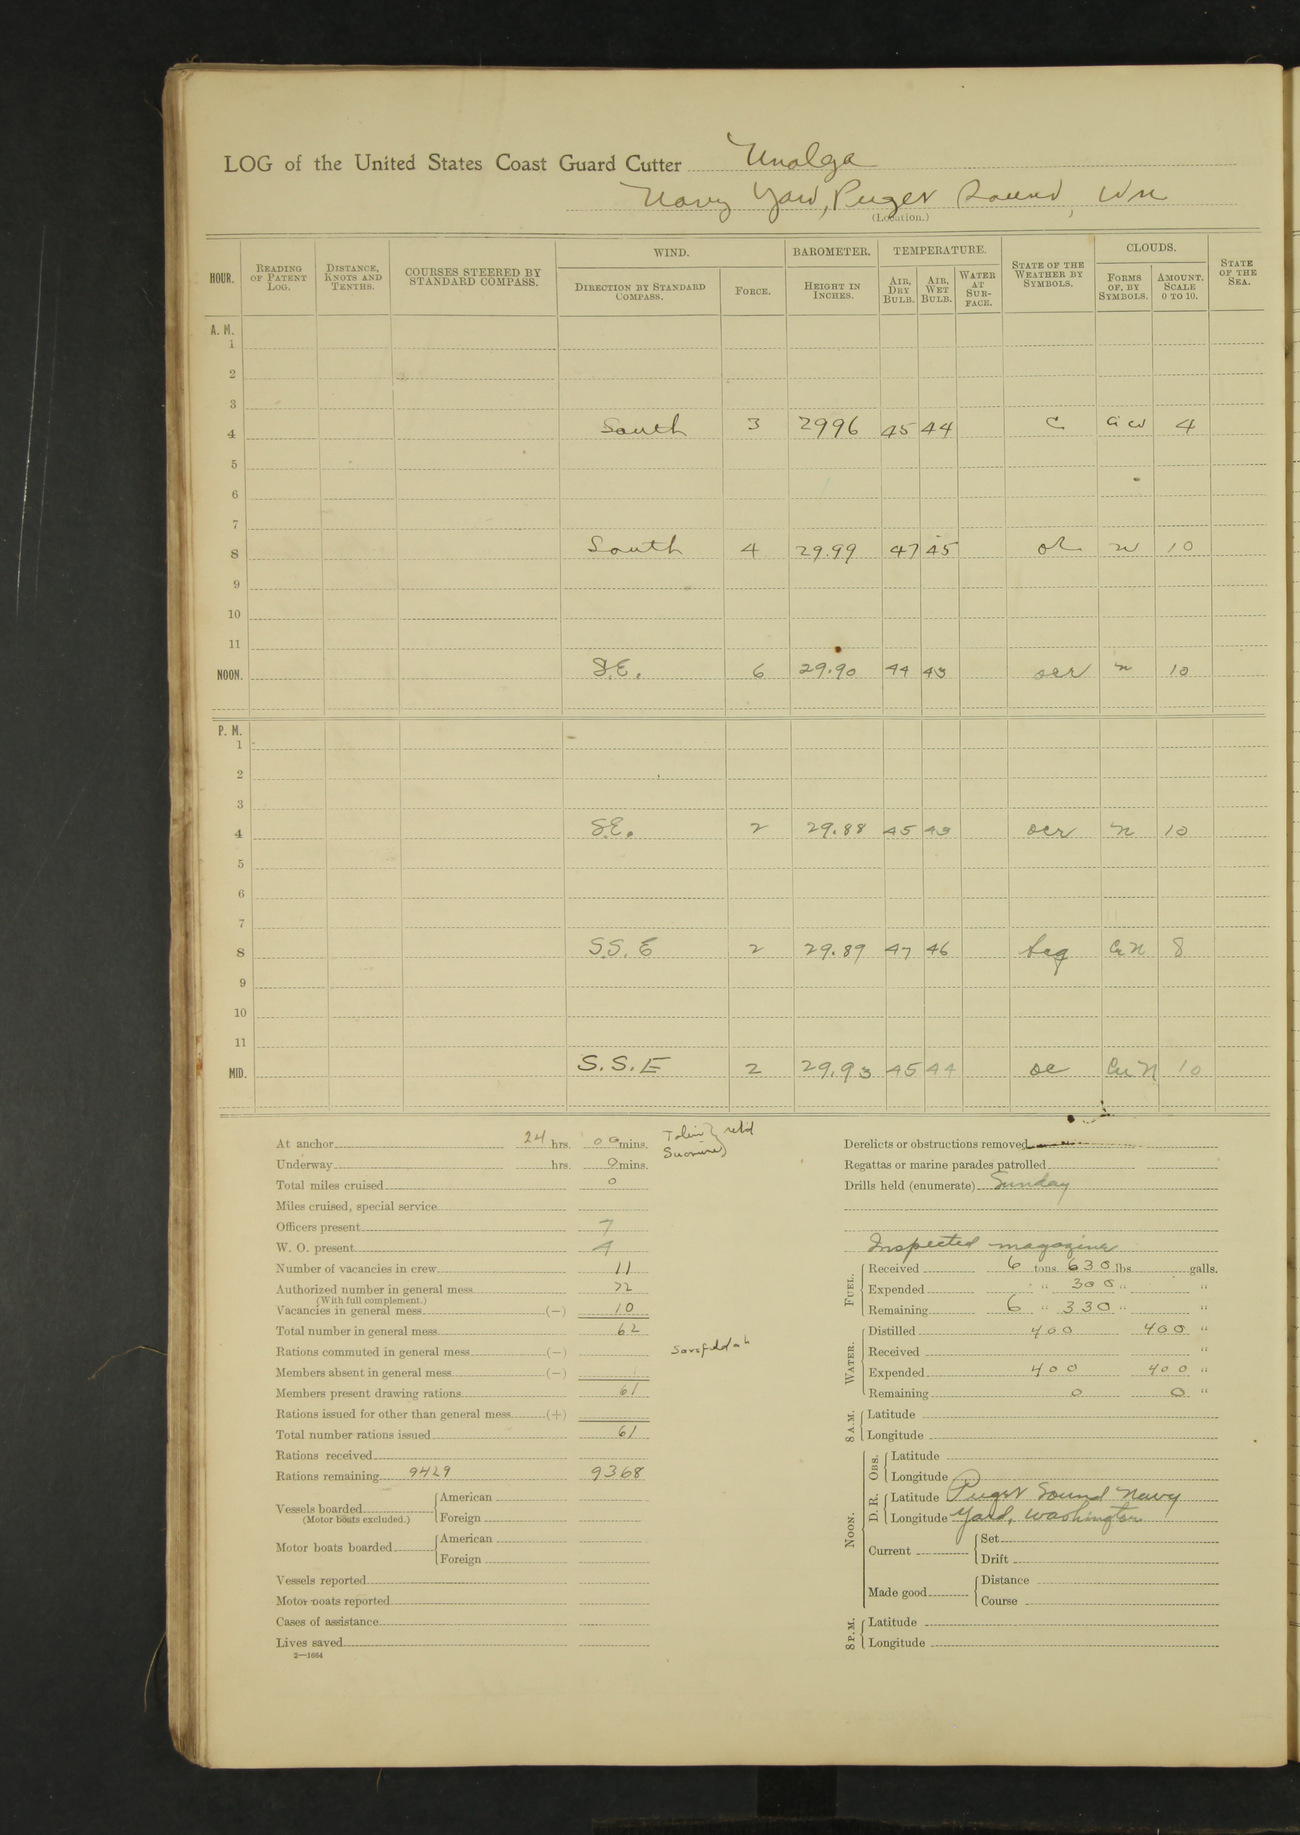 LOG of the United States Coast Guard Cutter Unalga
Navy Yard, Puget Sound, Wn
(Location.)
HOUR. READING OF PATENT LOG. DISTANCE, KNOTS AND TENTHS. COURSES STEERED BY STANDARD COMPASS. WIND. BAROMETER. TEMPERATURE. STATE OF THE WEATHER BY SYMBOLS. CLOUDS. STATE OF THE SEA.
DIRECTION BY STANDARD COMPASS. FORCE. HEIGHT IN INCHES. AIR, DRY BULB. AIR, WET BULB. WATER AT SURFACE. FORMS OF, BY SYMBOLS. AMOUNT. SCALE 0 TO 10.
A. M.
1
2
3
4 South 3 2996 45 44 c 4
5
6
7
8 South 4 29.99 47 45 n 10
9
10
11
NOON. S.E. 6 29.90 44 43 ocr n 10
P. M.
1
2
3
4 S.E. 2 29.88 45 43 ocr n 10
5
6
7
8 S.S.E 2 29.89 47 46 bcq Cu N 8
9
10
11
MID. S.S.E 2 29.93 45 44 oc Cu N 10
At anchor 24 hrs. 00 mins.
Underway hrs. 0 mins.
Total miles cruised 0
Miles cruised, special service
Officers present 7
W. O. present 4
Number of vacancies in crew 11
Authorized number in general mess 72
(With full complement.)
Vacancies in general mess (—) 10
Total number in general mess 62
Rations commuted in general mess (—)
Members absent in general mess (—) 1
Members present drawing rations 61
Rations issued for other than general mess (+)
Total number rations issued 61
Rations received
Rations remaining 9429 9368
Vessels boarded American
(Motor boats excluded.) Foreign
Motor boats boarded American
Foreign
Vessels reported
Motor boats reported
Cases of assistance
Lives saved
2—1664
Derelicts or obstructions removed
Regattas or marine parades patrolled
Drills held (enumerate) Sunday
Inspected magazines
FUEL. Received 6 tons 630 lbs galls.
Expended " 300 " "
Remaining 6 " 330 " "
WATER. Distilled 400 400 "
Received "
Expended 400 400 "
Remaining 0 0 "
8 A.M. Latitude
Longitude
NOON. OBS. Latitude
Longitude
D. R. Latitude Puget Sound Navy
Longitude Yard, Washington
Current Set
Drift
Made good Distance
Course
8 P.M. Latitude
Longitude